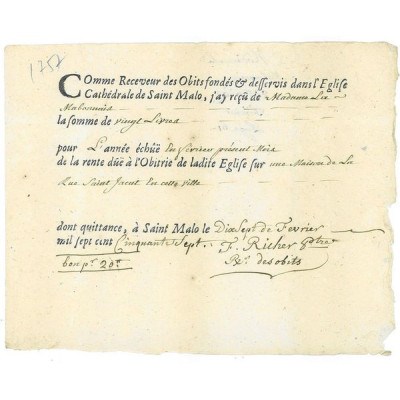 1757
Comme Receveur des Obits fondés & desservis dans l'Eglise
Cathédrale de Saint Malo, j'ay reçû de Madame La
la somme de vingt Livres
pour L'année échûë En Fevrier présent Mois
de la rente dûë à l'Obitrie de ladite Eglise sur une Maison de La
Rue Saint Jacut En cette ville
dont quittance, à Saint Malo le Dix Sept de Fevrier
mil sept cent Cinquante Sept. F. Richer ptre
bon pr. 20lt
Rr. des obits